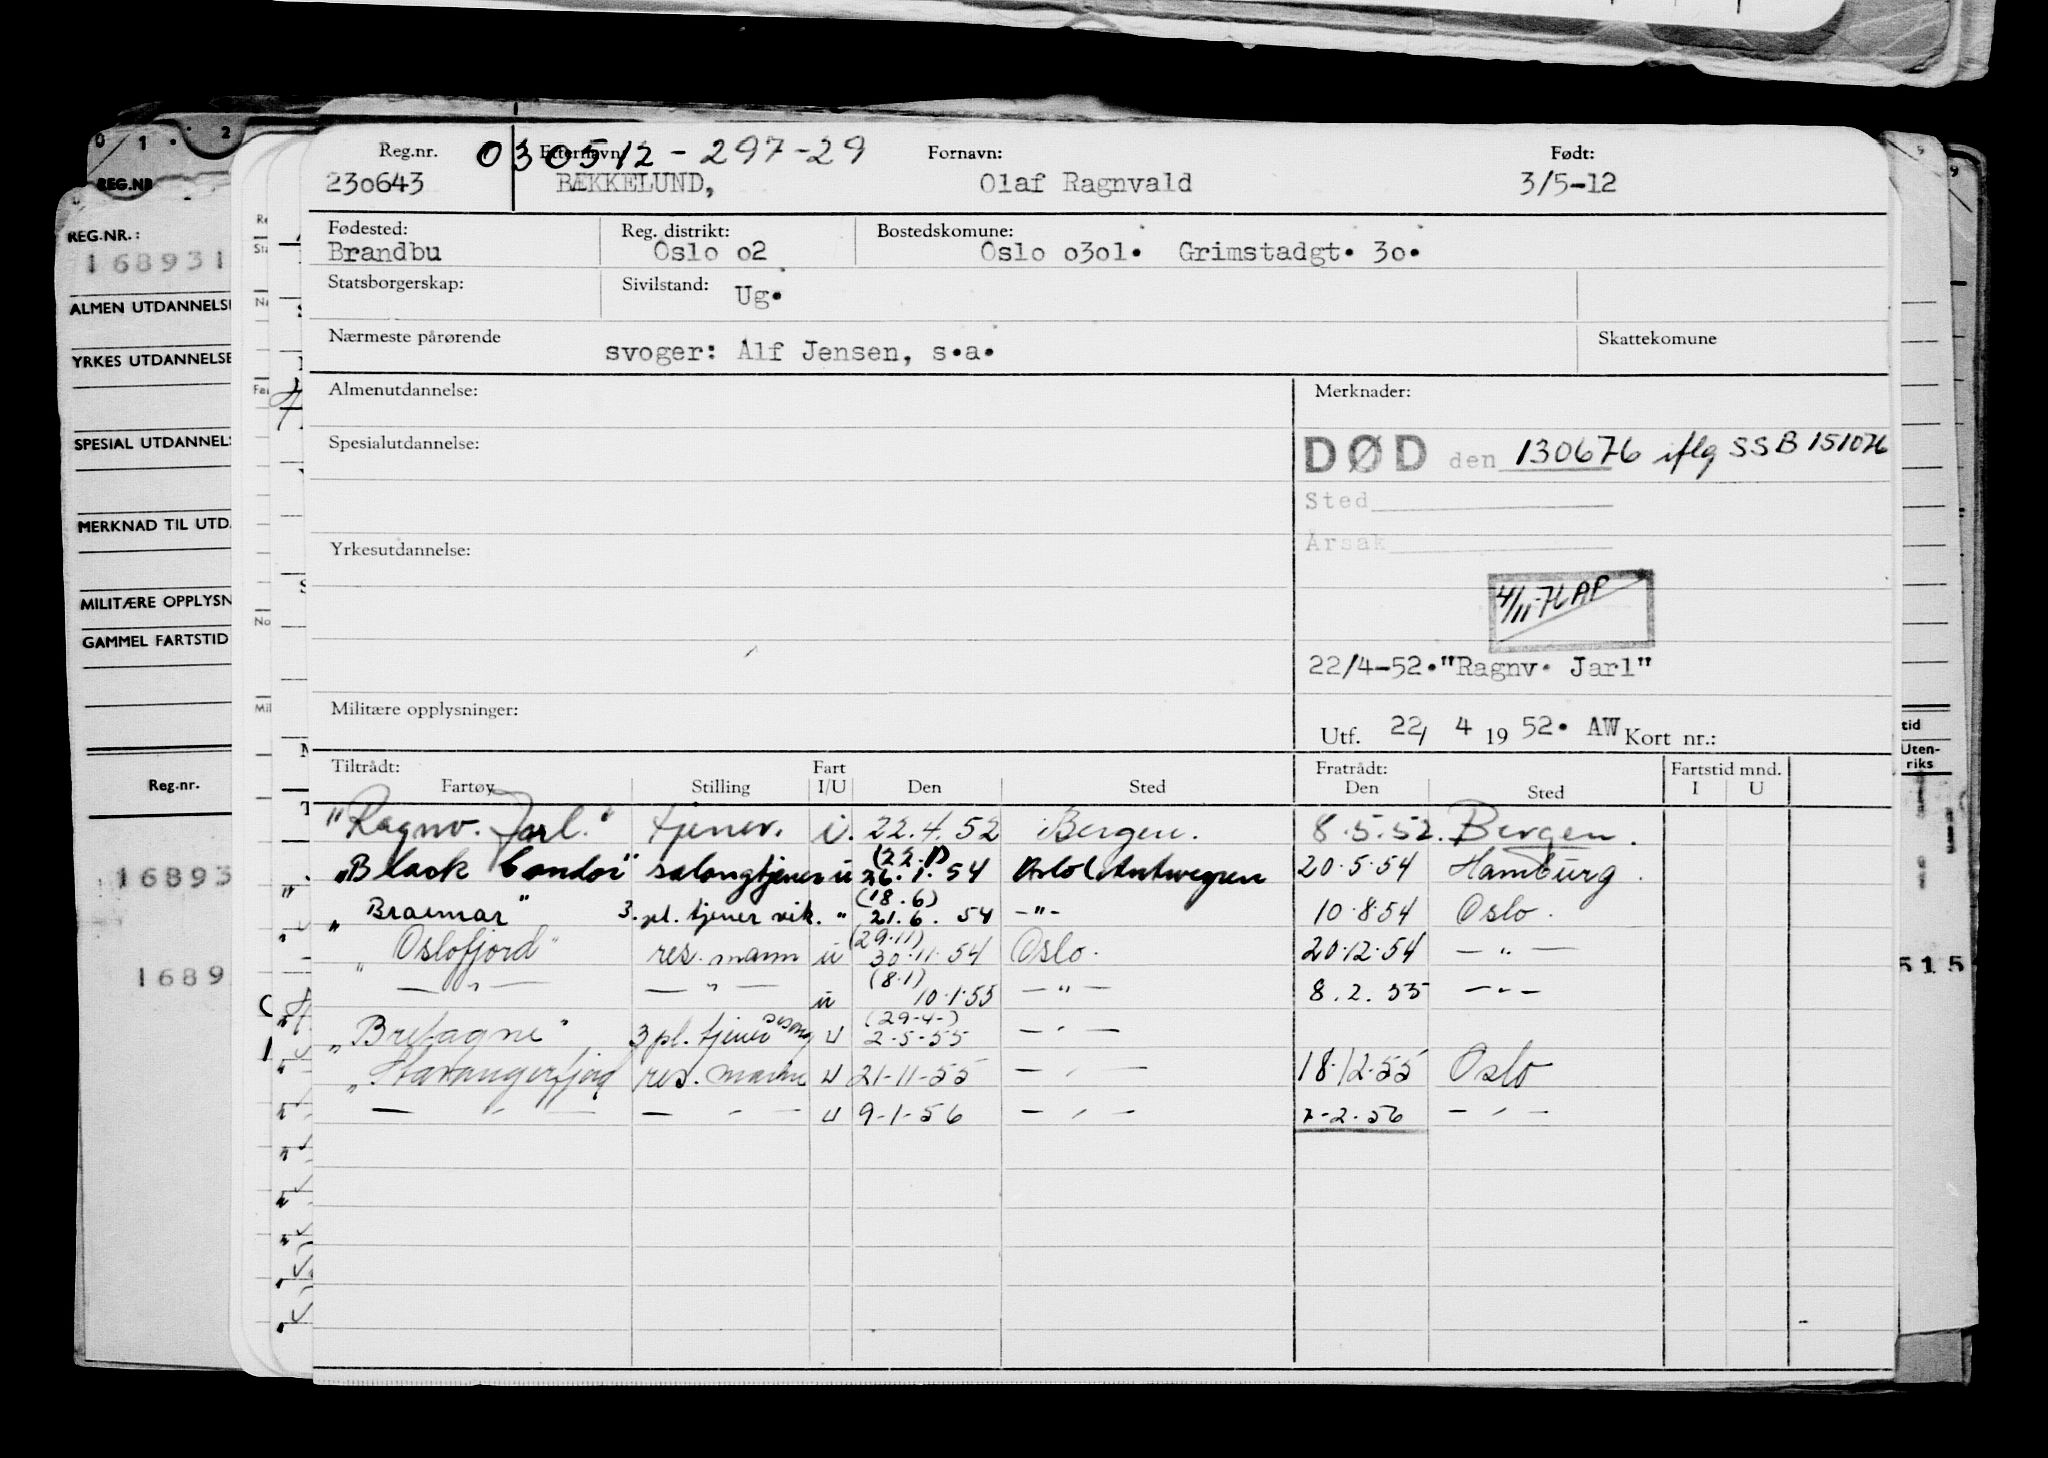 0 1 . 2
REG.NR
REG.NR.:
168931
ALMEN UTDANNELSE
YRKES UTDANNELSE
SPESIAL UTDANNELS
MERKNAD TIL UTD.
MILITÆRE OPPLYSN
GAMMEL FARTSTID
Reg.nr.
16893
1689
Reg.nr. 030512-297-29 Etternavn: Fornavn: Født:
230643 BÆKKELUND, Olaf Ragnvald 3/5-12
Fødested: Reg. distrikt: Bostedskomune:
Brandbu Oslo o2 Oslo o3o1. Grimstadgt. 3o.
Statsborgerskap: Sivilstand: Ug.
Nærmeste pårørende svoger: Alf Jensen, s.a. Skattekomune
Almenutdannelse: Merknader:
Spesialutdannelse: DØD den 130676 iflg SSB 151076
Sted
Årsak
Yrkesutdannelse:
4/11-76 AP
22/4-52."Ragnv. Jarl"
Militære opplysninger: Utf. 22/ 4 19 52. AW Kort nr.:
Tiltrådt: Fart Fratrådt: Fartstid mnd.
Fartøy Stilling I/U Den Sted Den Sted I U
"Ragnv. Jarl." tjener. i. 22.4.52 Bergen. 8.5.52. Bergen.
"Black Condor" salongtjener u (22.1) 26.1.54 Oslo (Antwerpen 20.5.54 Hamburg.
"Braemar" 3. pl. tjener vik. " (18.6) 21.6.54 -"- 10.8.54 Oslo.
"Oslofjord" res. mann u (29.11) 30.11.54 Oslo. 20.12.54 — " —
— " — — " — u (8.1) 10.1.55 — " — 8.2.55 -"-
"Bretagne" 3 pl. tjener sesong u (29-4-) 2-5-55 — " —
"Stavangerfjord res. mann u 21-11-55 — " — 18.12.55 Oslo
— " — — " — u 9-1-56 — " — 7-2-56 — " —
tid
Uten-
riks
515